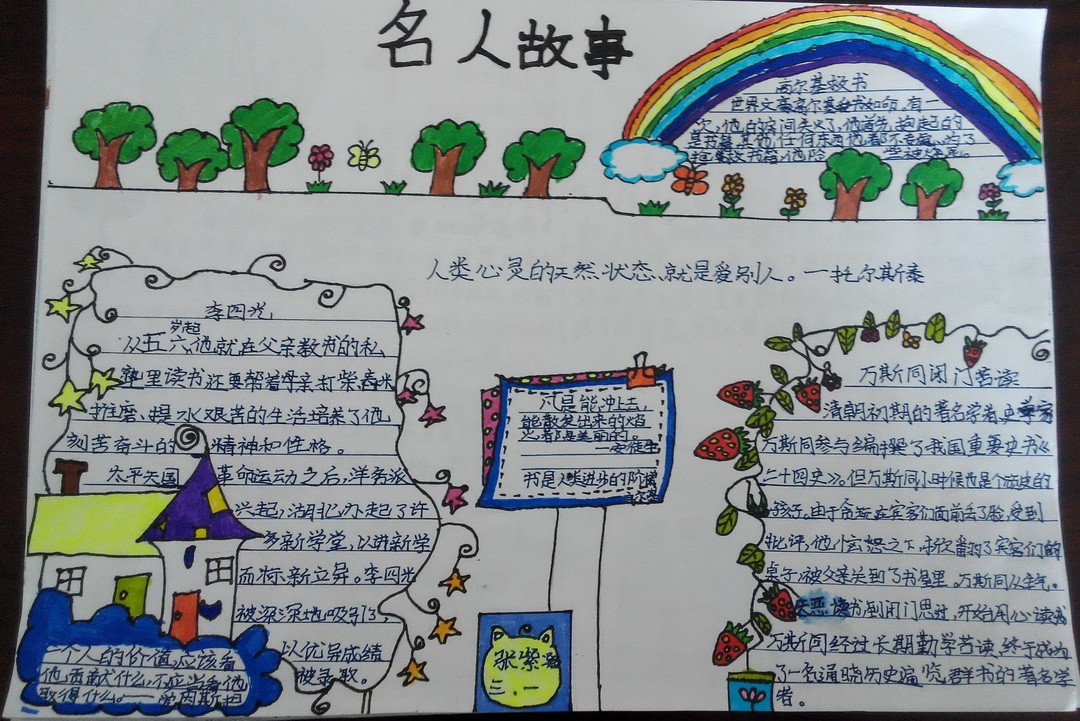 名人故事
高尔基救书
世界文豪高尔基爱书如命,有一
次,他的房间失火了,他首先抱起的
是书籍,其他任何东西他都不考虑。为了
抢救书籍,他险
人类心灵的天然状态,就是爱别人。—托尔斯泰
李四光
从五六岁起,他就在父亲教书的私
塾里读书还要帮着母亲打柴舂米
推磨、提水艰苦的生活培养了他
刻苦奋斗的精神和性格。
太平天国革命运动之后,洋务派
兴起,湖北办起了许
多新学堂,以讲新学
而标新立异。李四光
被深深地吸引了,
以优异成绩
被录取。
一个人的价值,应该看
他贡献什么,不应当看他
取得什么。——爱因斯坦
只是能冲上去,
能散发出来的焰
火都是美丽的。
—安徒生
书是人类进步的阶梯
高尔基
张紫
三、一
万斯同闭门苦读
清朝初期的著名学者、史学家
万斯同参与编撰了我国重要史书《
二十四史》。但万斯同小时候也是个顽皮的
孩子。由于贪玩在宾客们面前丢了脸,受到
批评,他恼怒之下,掀翻了宾客们的
桌子,被父亲关到了书屋里。万斯同从生气、
厌恶读书到闭门思过,开始用心读书
万斯同经过长期勤学苦读,终于成为
了一名通晓历史遍览群书的著名学
者。